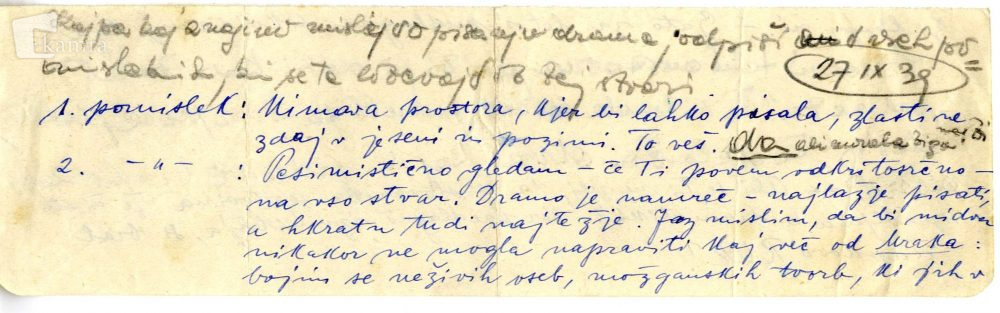 Kaj pa kaj z najino mislijo o pisanju drame, odpiši o vseh po=
mislekih, ki se te lotevajo ob tej stvari
27 IX 39
1. pomislek: Nimava prostora, kjer bi lahko pisala, zlasti ne
zdaj v jeseni in pozimi. To veš. da ali morala
2. -"- : Pesimistično gledam – če Ti povem odkritosrčno –
na vso stvar. Dramo je namreč – najlažje pisati,
a hkratu tudi najtežje. Jaz mislim, da bi midva
nikakor ne mogla napraviti kaj več od Mraka:
bojim se neživih oseb, možganskih tvorb, ki jih v
kamra